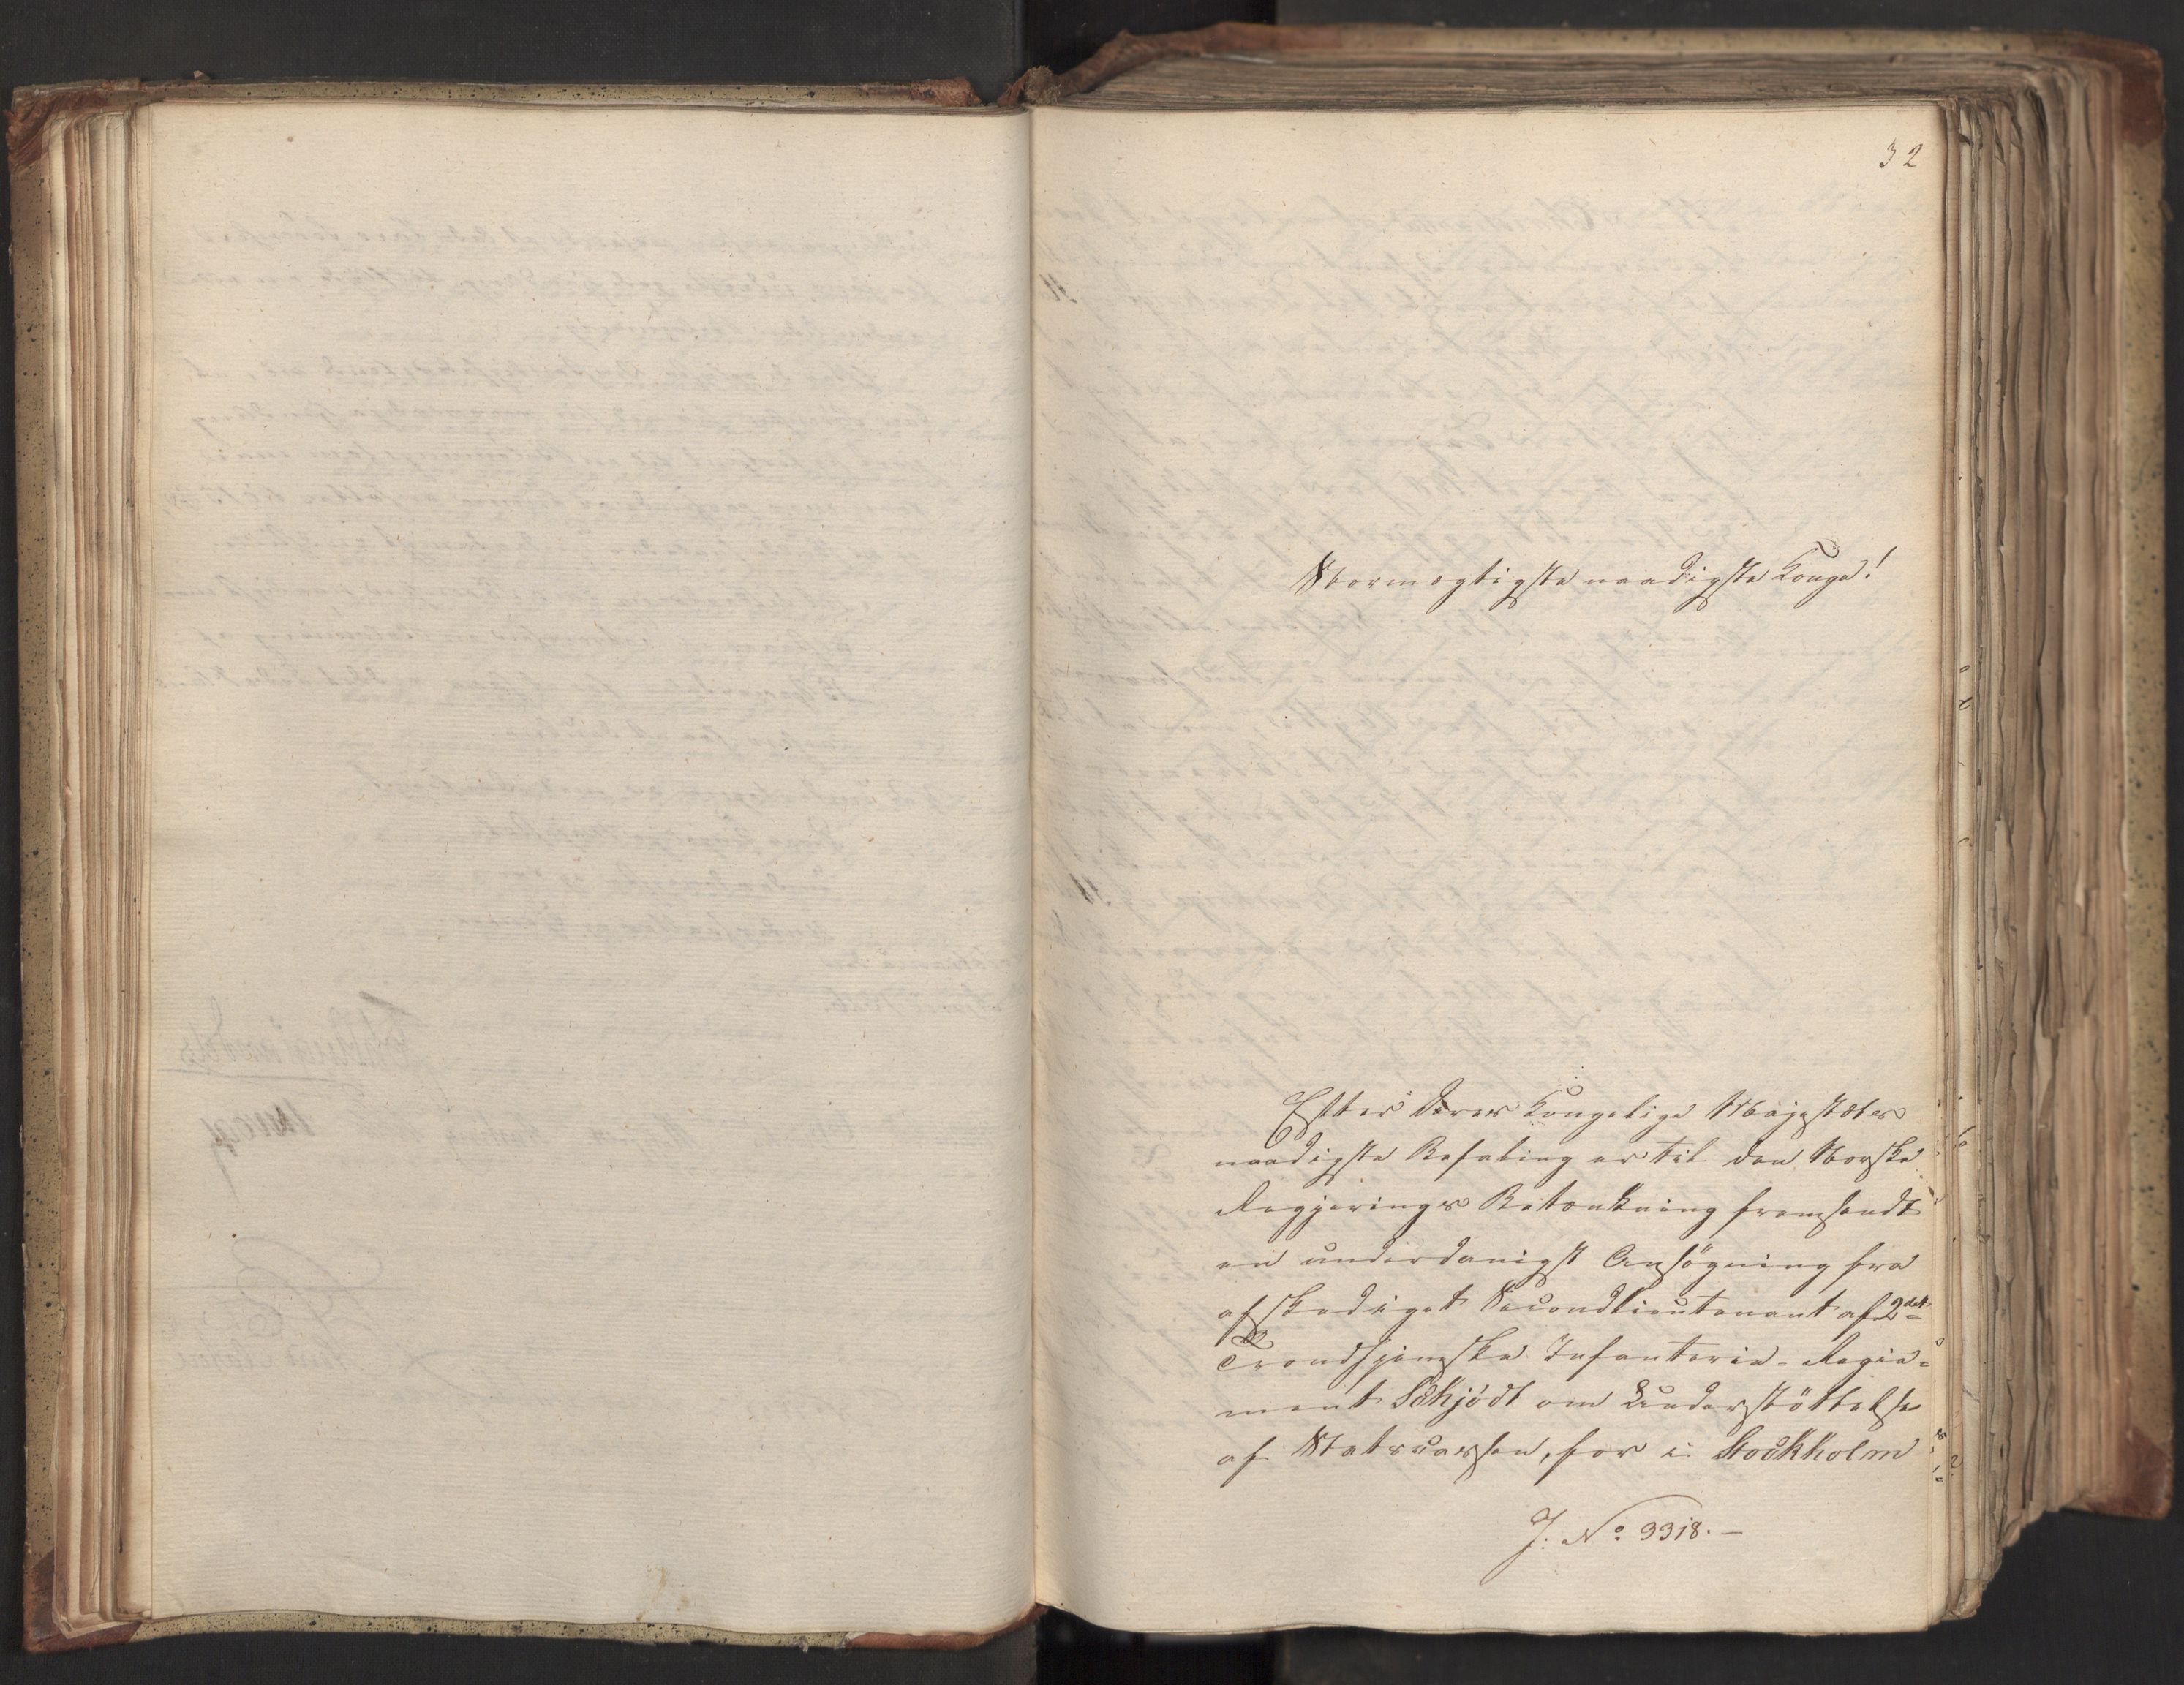 32
Stormægtigste naadigste Konge!
Efter Deres Kongelige Majestæts
naadigste Befaling er til den Norske
Regjerings Betænkning fremsendt
en underdanigst Ansøgning fra
afskediget Secondlieutenant af 2det
Trondhjemske Infanterie-Regie-
ment Schjödt om Understöttelse
af Statscassen, for i Stockholm
J. No 3318.-